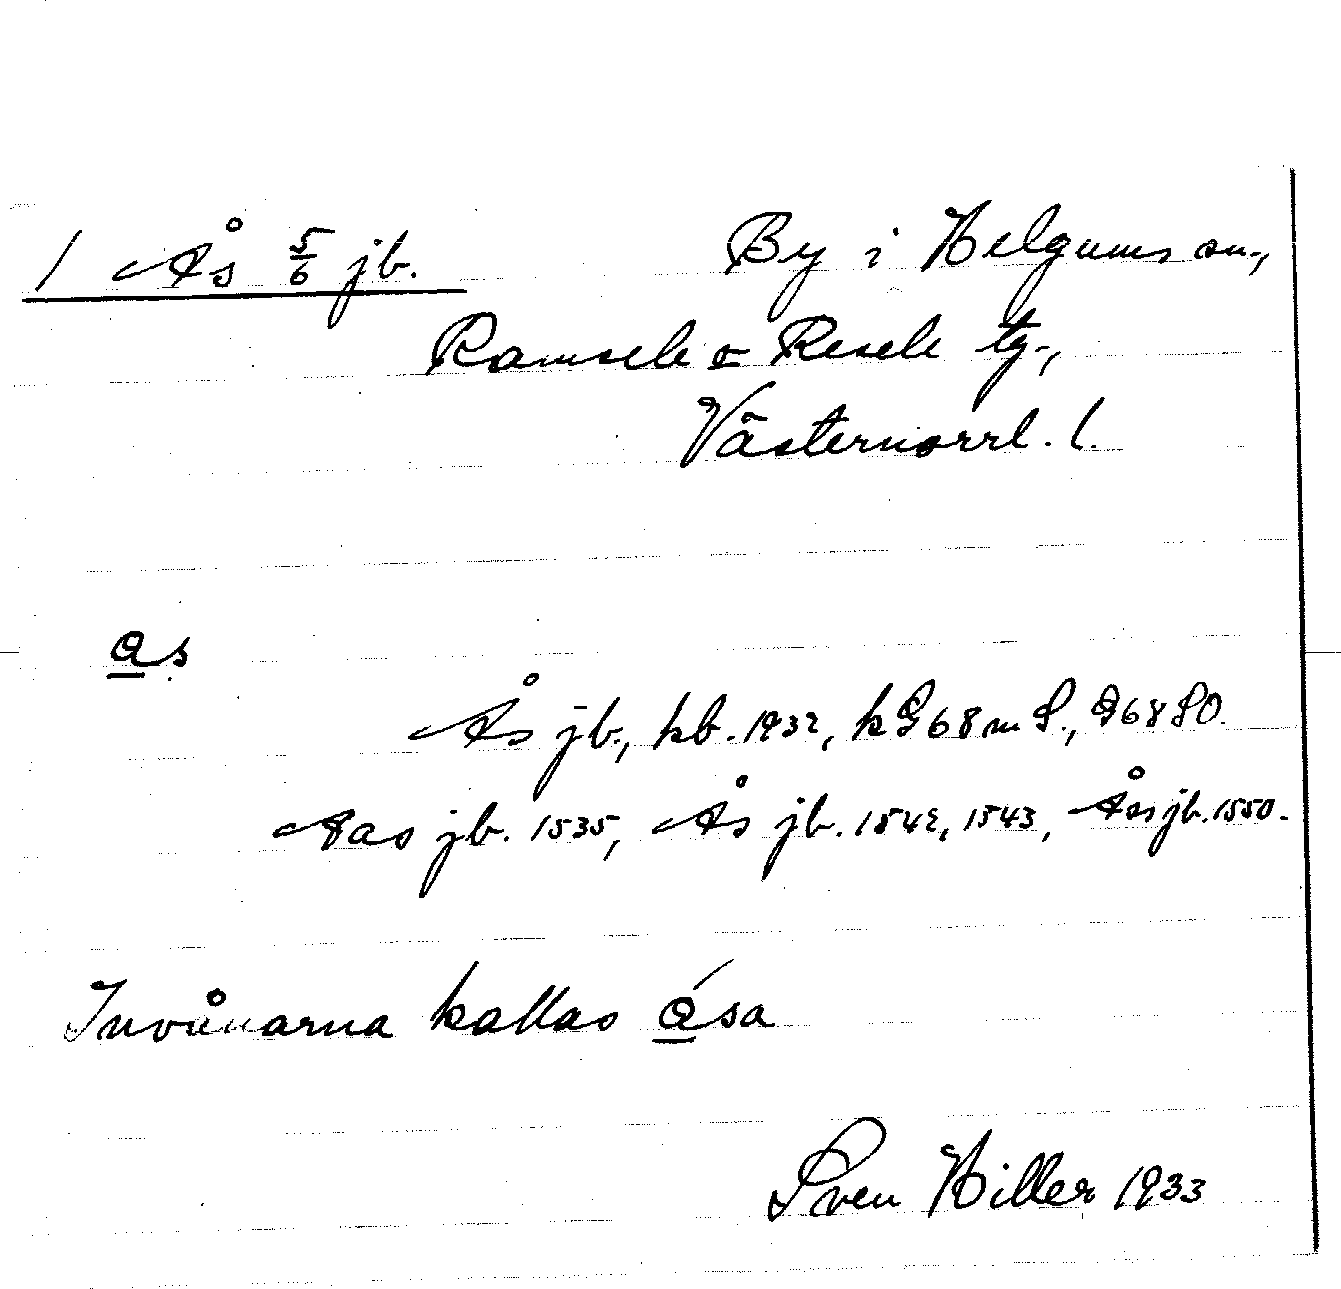 1 Ås 5/6 jb. By i Helgums sn.,
Ramsele o Resele tg.,
Västernorrl. l.
ås
Ås jb., kb. 1932, kG 68 m S., G 68 SO.
Aas jb. 1535, Ås jb. 1542, 1543, Åås jb. 1550.
Invånarna kallas åsa
Sven Hiller 1933